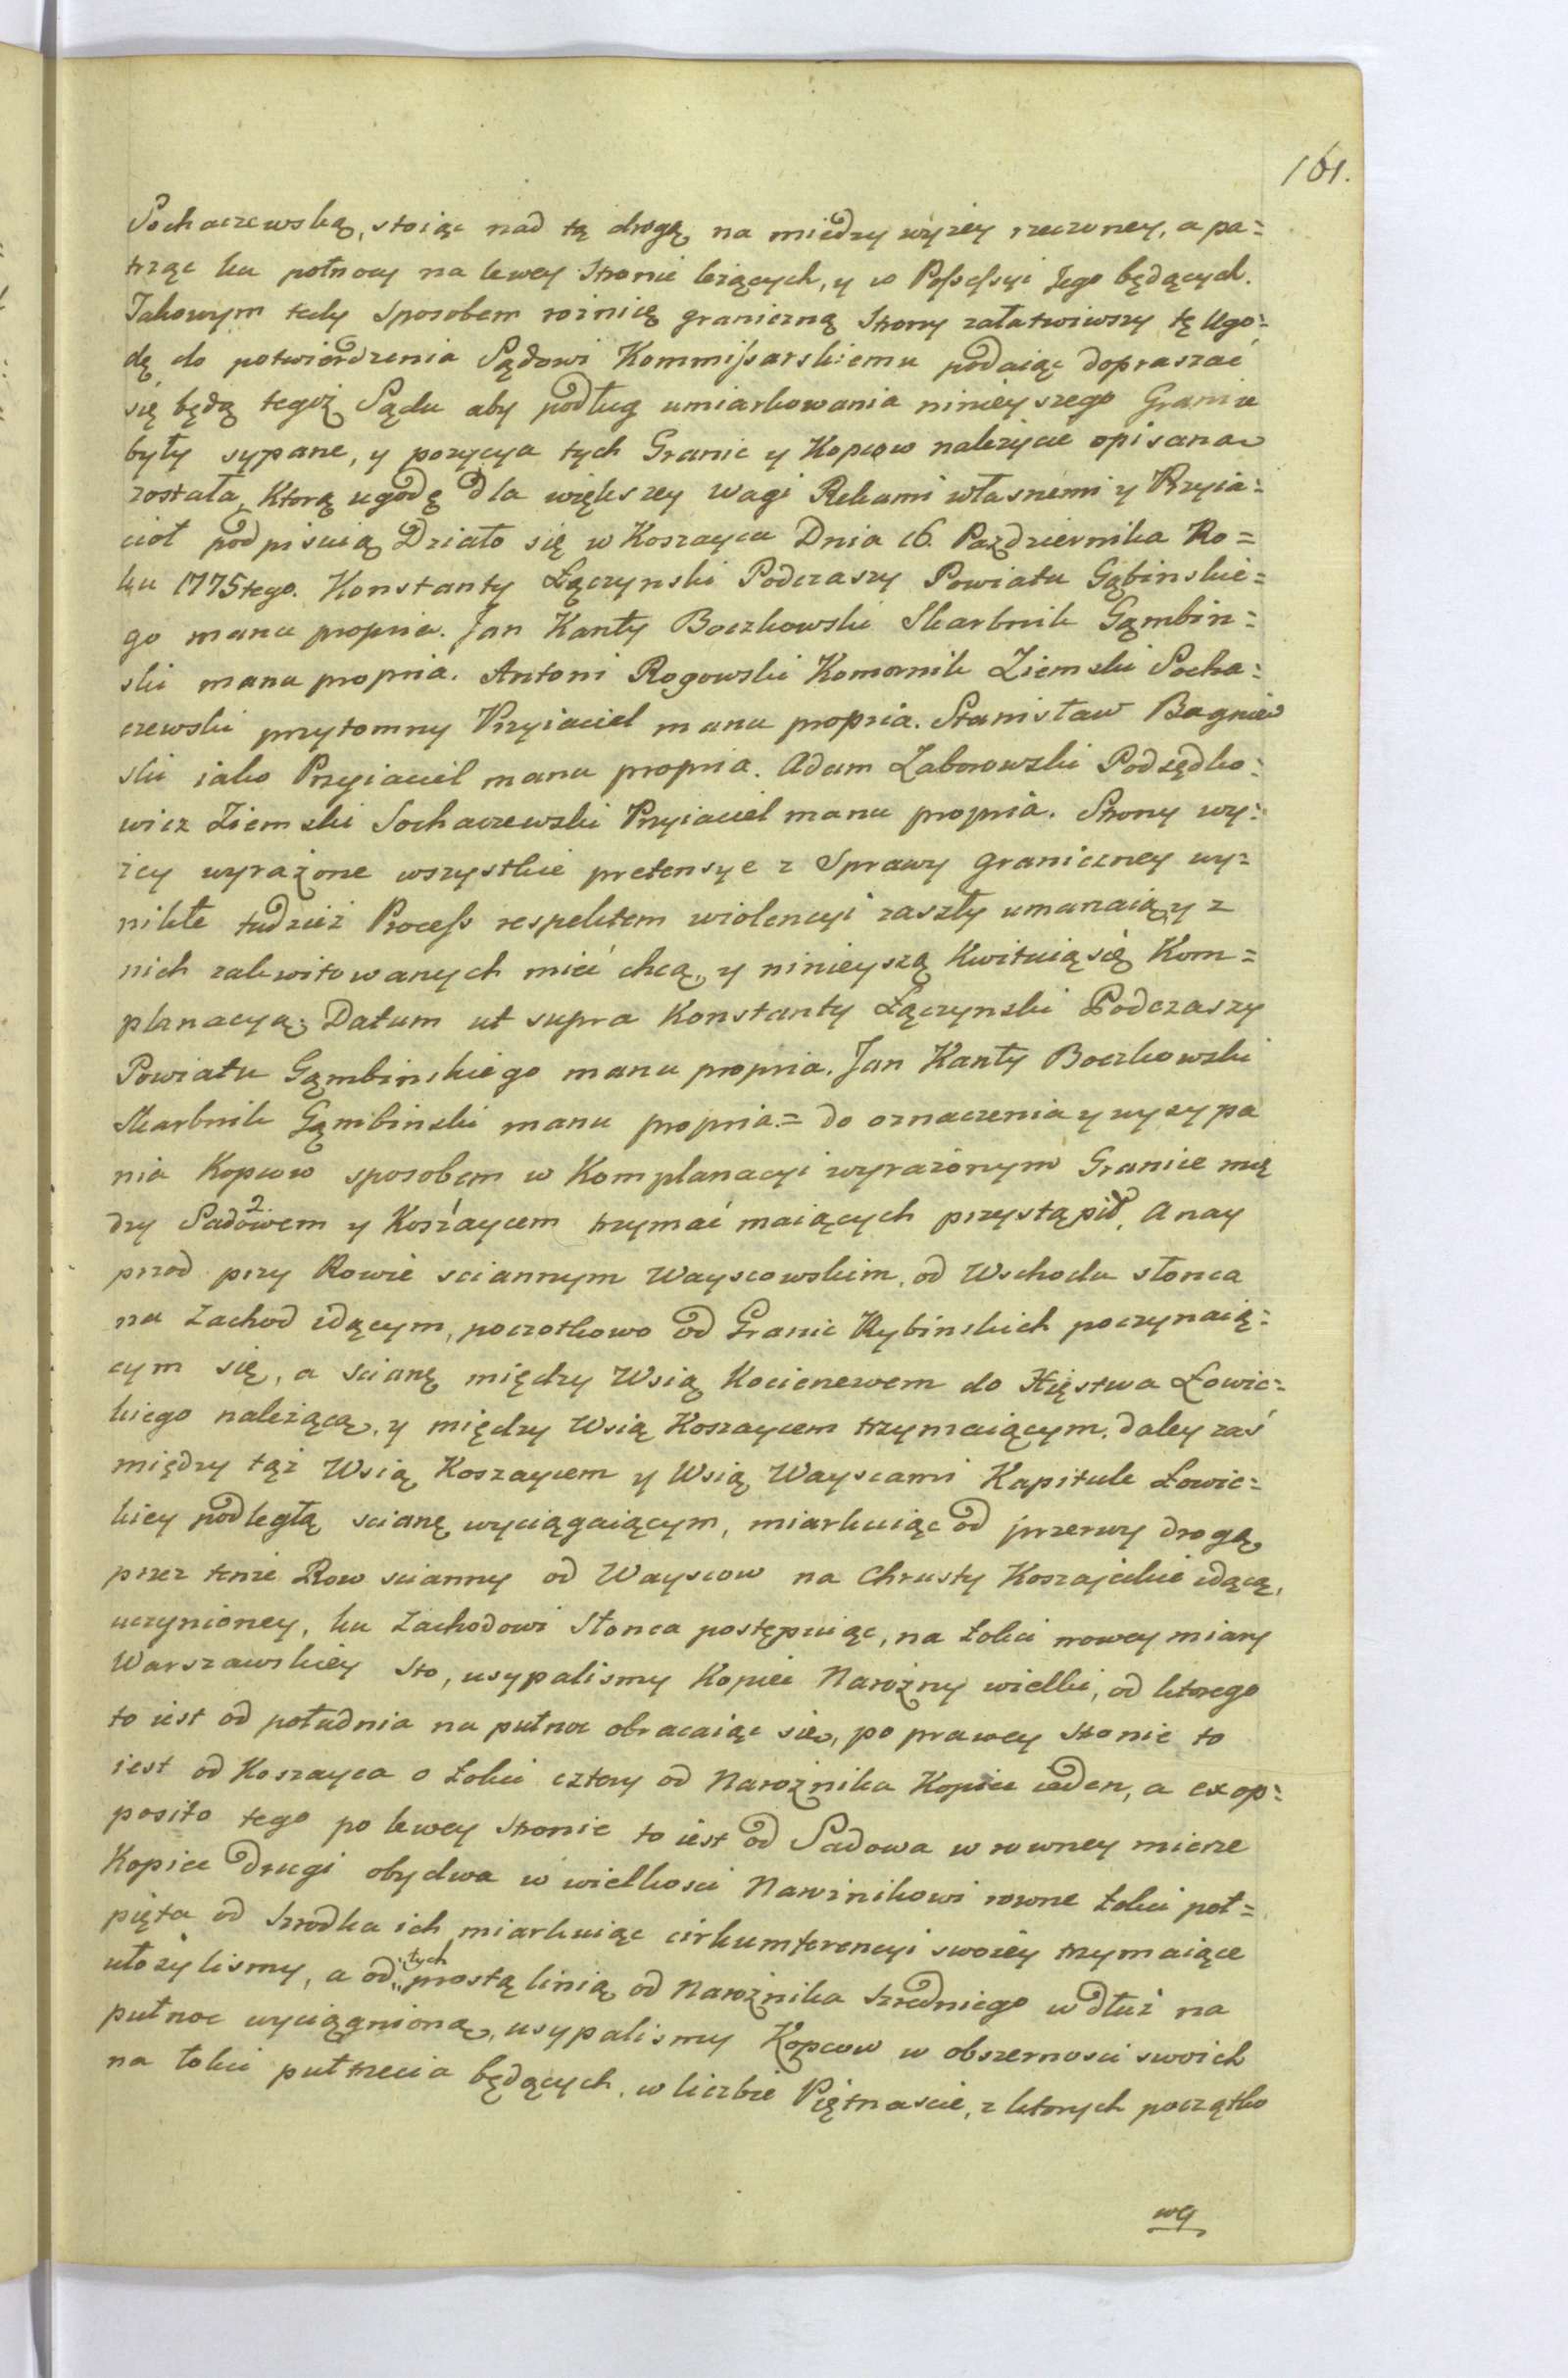 161.
Sochaczewską, stoiąc nad tą drogą na miedzy wyżey rzeczoney, a pa=
trząc ku połnocy na lewey stronie leżących, y w Possessyi Jego będących.
Jakowym tedy Sposobem rożnicę graniczną Strony załatwiwszy tę Ugo=
dę do potwierdzenia Sądowi Kommissarskiemu podaiąc dopraszać
się będą tegoż Sądu aby podług umiarkowania ninieyszego Granice
były sypane, y pozycya tych Granic y Kopcow należycie opisana
została, Ktorą ugodę dla większey wagi Rękami własnemi y Przyia=
cioł podpisuią Działo się w Koszaycu Dnia 16. Pazdziernika Ro=
ku 1775tego. Konstanty Łączynski Podczaszy Powiatu Gąbinskie=
go manu propria. Jan Kanty Boczkowski Skarbnik Gąmbin=
ski manu propria. Antoni Rogowski Komornik Ziemski Socha=
czewski przytomny Przyiaciel manu propria. Stanisław Bagniew
ski iako Przyiaciel manu propria. Adam Zaborowski Podsędko=
wicz Ziemski Sochaczewski Przyiaciel manu propria. Strony wy=
żey wyrażone wszystkie pretensye z Sprawy graniczney wy=
nikłe tudzież Process respektem wiolencyi zaszły umarzaią, y z
nich zakwitowanych mieć chcą, y ninieyszą Kwituią się Kom=
planacyą. Datum ut supra Konstanty Łączynski Podczaszy
Powiatu Gąmbinskiego manu propria. Jan Kanty Boczkowski
Skarbnik Gąmbinski manu propria.= do oznaczenia y wysypa
nia Kopcow sposobem w Komplanacyi wyrażonym Granice mię
dzy Sadowem y Koszaycem trzymać maiących przystąpił, A nay
przod przy Rowie sciannym Wayscowskim, od Wschodu słonca
na Zachod idącym, początkowo od Granic Rybinskich poczynaią=
cym się, a scianę między Wsią Kocienewem do Xięstwa Łowic=
kiego należącą, y między Wsią Koszaycem trzymaiącym, daley zaś
między tąż Wsią Koszaycem y Wsią Wayscami Kapitule Łowic=
kiey podległą scianę wyciągaiącym, miarkuiąc od przerwy drogą,
przez tenże Row scianny od Wayscow na Chrusty Koszajeckie idącą,
uczynioney, ku Zachodowi Słonca postępuiąc, na Łokci nowey miary
Warszawskiey sto, usypalismy Kopiec Narożny wielki, od ktorego
to iest od południa na pułnoc obracaiąc się, po prawey stronie to
iest od Koszayca o Łokci cztery od Narożnika Kopiec ieden, a exop=
posito tego po lewey stronie to iest od Sadowa w rowney mierze
Kopiec drugi obydwa w wielkosci Narożnikowi rowne Łokci poł=
pięta od szrodka ich miarkuiąc cirkumferencyi swoiey trzymaiące
ułożylismy, a od tych prostą linią od Narożnika szredniego wdłuż na
pułnoc wyciągnioną, usypalismy Kopcow w obszernosci swoich
na łokci pułtrzecia będących, w liczbie Piętnascie, z ktorych początko
wy